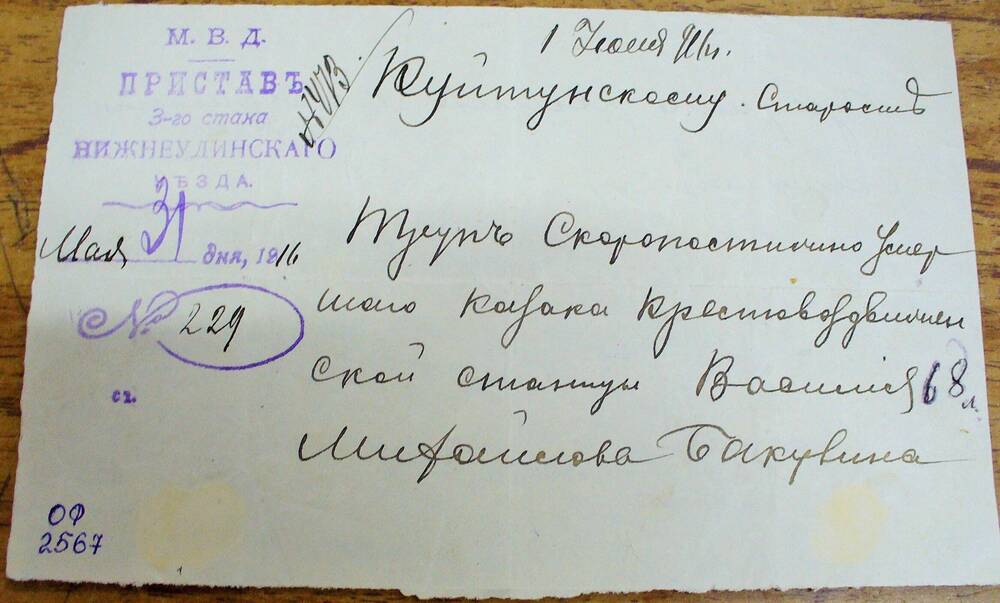 М. В. Д.
ПРИСТАВЪ
3-го стана
НИЖНЕУДИНСКАГО
УѢЗДА.
Мая 31 дня, 1916
№ 229
ст.
1 Июня
Куйтунскому Старостѣ
Трупъ Скоропостижно Умер
шаго казака Крестовоздвижен
ской станицы Василия 68 л.
Михайлова Бакувина
ОФ
2567